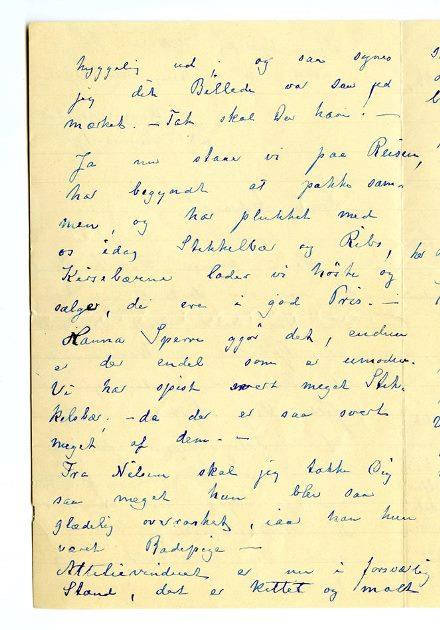 hyggelig ud. og saa synes
jeg dit Billede var saa ud
mærket. – Tak skal Du have. –
Ja nu staar vi paa Reisen,
har begyndt at pakke sam-
men, og har plukket med
os idag Stikkelbær og Ribs,
Kirsebærrene lader vi høste og
sælger, de ere i god Pris. –
Hanna Sperre gjør det, endnu
er der endel som er umodne.
Vi har spist svært meget Stik-
kelsbær, – da der er saa svært
meget af dem. –
Fra Nielsen skal jeg takke Dig
saa meget han blev saa
glædelig overrasket, iaar han hun
været Badepige –
Attelievinduet er nu i forsvarlig
Stand, det er kittet og malt